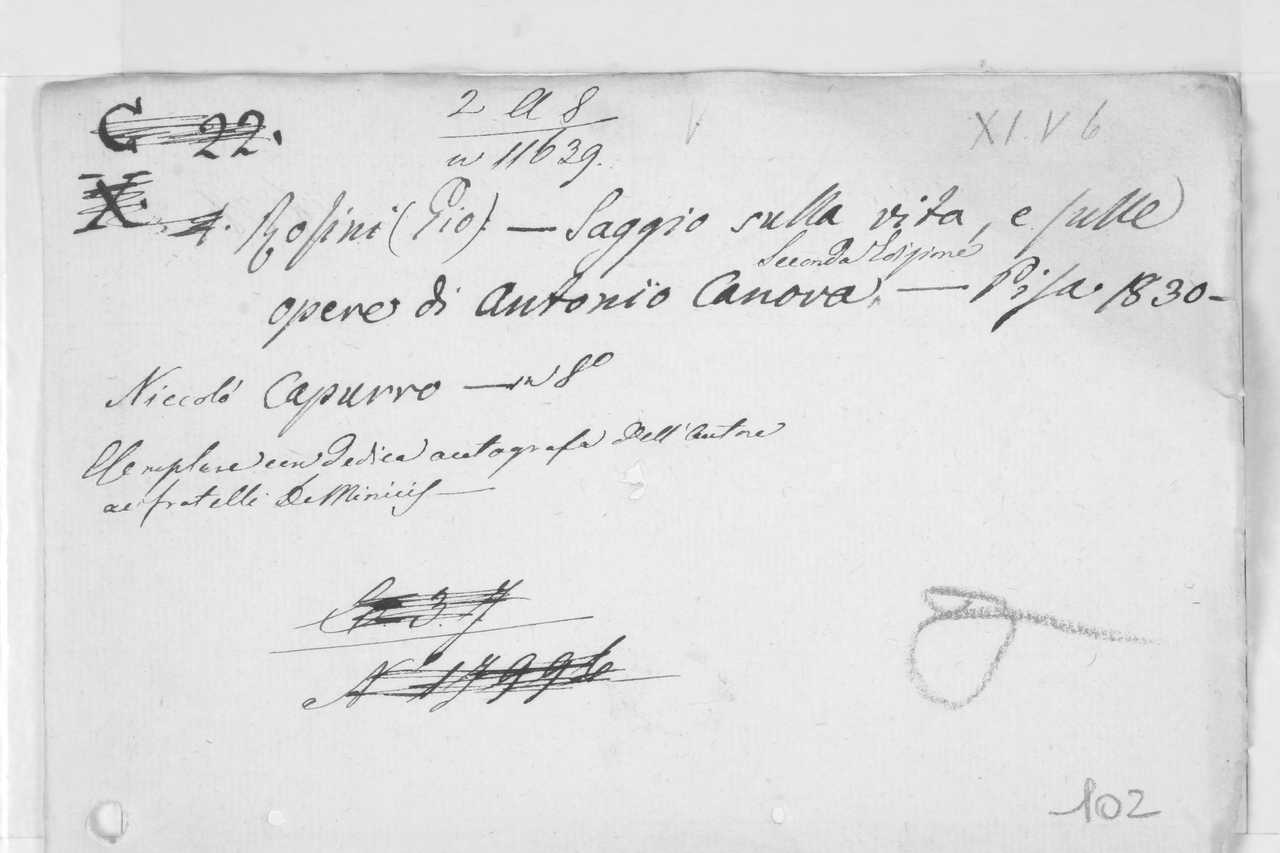 C 22.
2 A 8
n 11639.
V
XI. V 6
X. 4. Rosini (Gio). — Saggio sulla vita, e sulle
Seconda Edizione
opere di Antonio Canova. — Pisa 1830 -
Niccolò Capurro — in 8º
Esemplare con dedica autografa dell'autore
ai fratelli De Minicis —
3.
Nº 17996
102